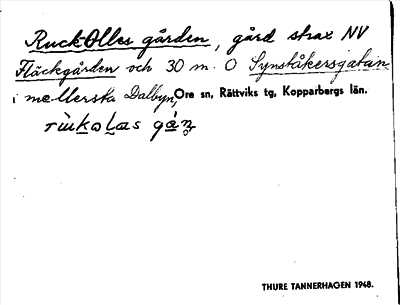 RuckOlles gården, gård strax NV
Fläckgården och 30 m. O Synståkersgatan
i mellersta Dalbyn, Ore sn, Rättviks tg, Kopparbergs län.
THURE TANNERHAGEN 1948.